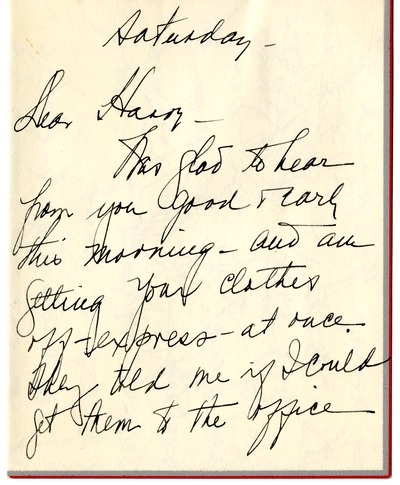 Saturday -
Dear Harry -
Was glad to hear
from you good & early
this morning - and am
getting your clothes
off - express - at once.
They told me if I could
get them to the office